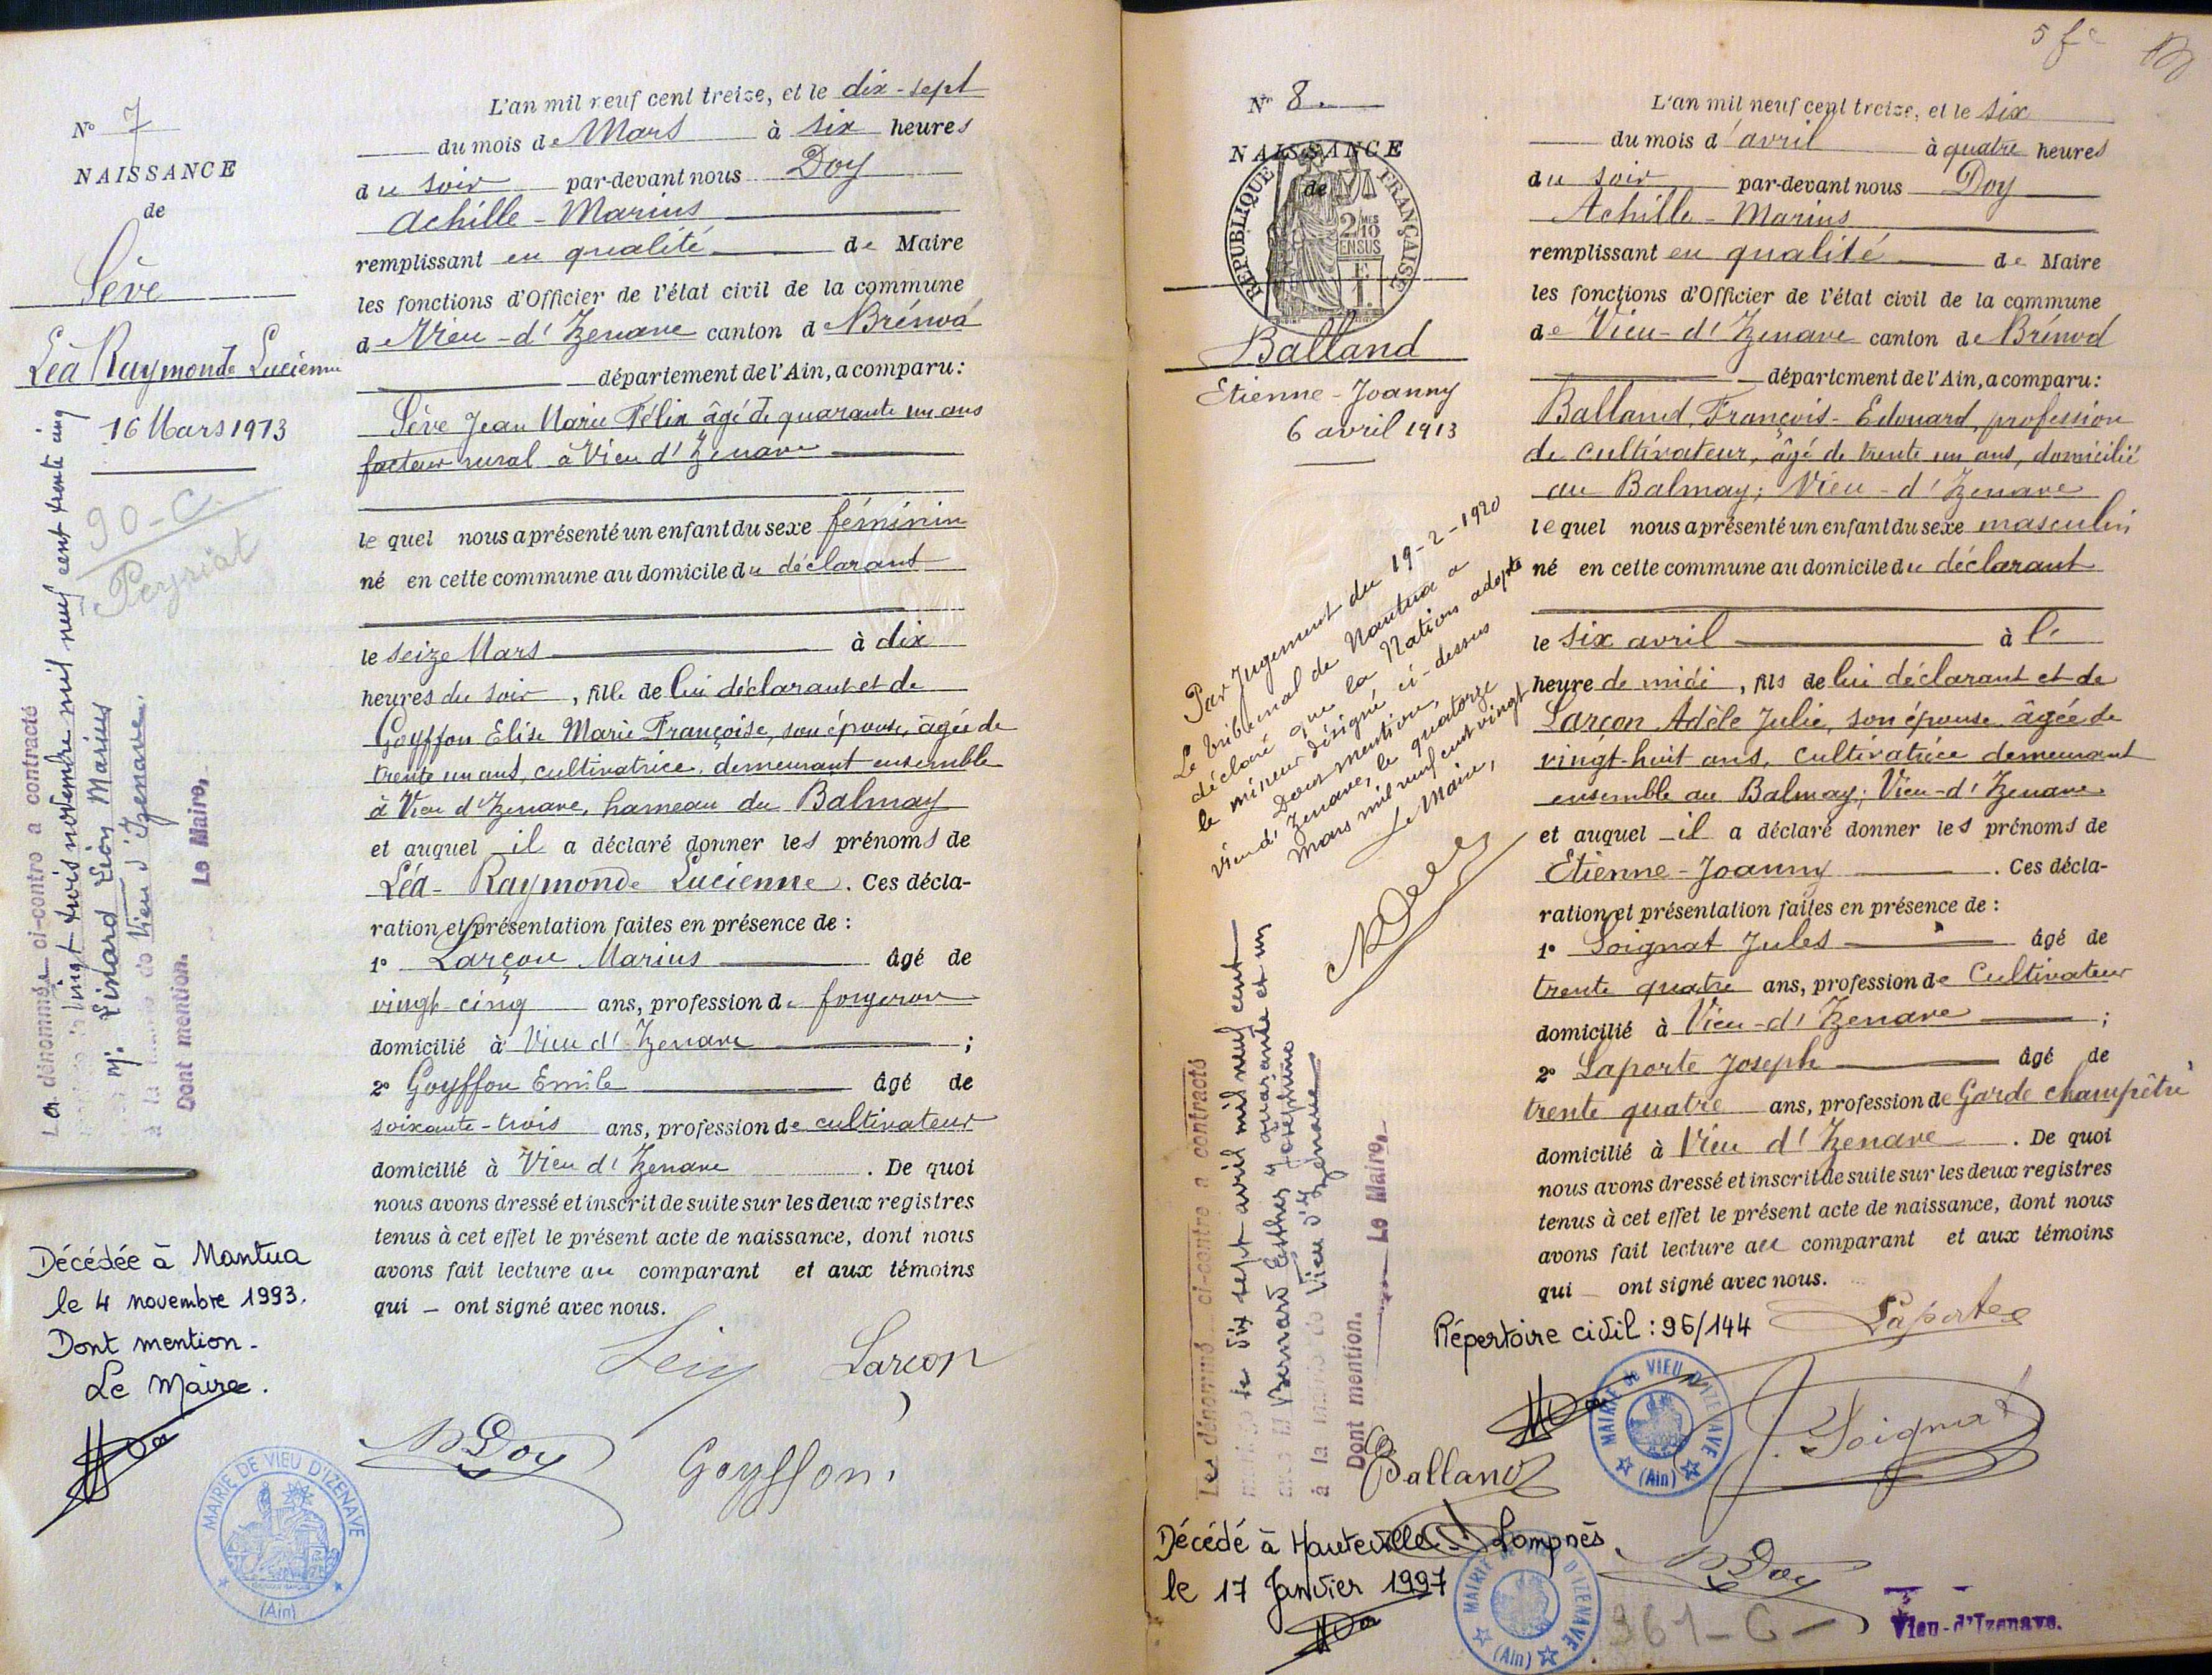 N° 7
NAISSANCE
de
Sève
Léa Raymonde Lucienne
16 Mars 1913
90-C.
Peyriat
La dénommée ci-contre a contracté
vingt trois novembre mil neuf cent trente cinq
M. Linard Léon Marius
à la mairie de Vieu d'Izenave.
Dont mention. Le Maire,
Décédée à Nantua
le 4 novembre 1993.
Dont mention.
Le Maire.
MAIRIE DE VIEU D'IZENAVE
(Ain)
L'an mil neuf cent treize, et le dix-sept
du mois de Mars à six heures
du soir par-devant nous Doy
Achille-Marius
remplissant en qualité de Maire
les fonctions d'Officier de l'état civil de la commune
de Vieu-d'Izenave canton de Brénod
département de l'Ain, a comparu:
Sève Jean Marie Félix âgé de quarante un ans
facteur rural à Vieu d'Izenave
lequel nous a présenté un enfant du sexe féminin
né en cette commune au domicile du déclarant
le seize Mars à dix
heures du soir, fille de lui déclarant et de
Goyffon Elise Marie Françoise, son épouse, âgée de
trente un ans, cultivatrice, demeurant ensemble
à Vieu d'Izenave, hameau du Balmay
et auquel il a déclaré donner les prénoms de
Léa-Raymonde Lucienne. Ces décla-
ration et présentation faites en présence de:
1° Larçon Marius âgé de
vingt-cinq ans, profession de forgeron
domicilié à Vieu d'Izenave;
2° Goyffon Emile âgé de
soixante-trois ans, profession de cultivateur
domicilié à Vieu d'Izenave. De quoi
nous avons dressé et inscrit de suite sur les deux registres
tenus à cet effet le présent acte de naissance, dont nous
avons fait lecture au comparant et aux témoins
qui ont signé avec nous.
Larçon
Doy
Goyffon.
5 fe
N° 8.
NAISSANCE
de
REPUBLIQUE FRANÇAISE
2/10
EN SUS
Balland
Etienne-Joanny
6 avril 1913
Par Jugement du 19-2-1920
Le tribunal de Nantua a
déclaré que la Nation adopte
le mineur désigné ci-dessus
Dont mention,
Vieu d'Izenave, le quatorze
Mars mil neuf cent vingt
Le Maire,
Doy
Le dénommé ci-contre a contracté
mariage le dix sept avril mil neuf cent quarante et un
avec M Bernard Esther Joséphine
à la mairie de Vieu d'Izenave
Dont mention. Le Maire,
L'an mil neuf cent treize, et le six
du mois d'avril à quatre heures
du soir par-devant nous Doy
Achille-Marius
remplissant en qualité de Maire
les fonctions d'Officier de l'état civil de la commune
de Vieu-d'Izenave canton de Brénod
département de l'Ain, a comparu:
Balland, François-Edouard, profession
de cultivateur, âgé de trente un ans, domicilié
au Balmay; Vieu-d'Izenave
lequel nous a présenté un enfant du sexe masculin
né en cette commune au domicile du déclarant
le six avril à l'
heure de midi, fils de lui déclarant et de
Larçon Adèle Julie, son épouse âgée de
vingt-huit ans, cultivatrice demeurant
ensemble au Balmay; Vieu-d'Izenave
et auquel il a déclaré donner les prénoms de
Etienne-Joanny. Ces décla-
ration et présentation faites en présence de:
1° Soignat Jules âgé de
trente quatre ans, profession de Cultivateur
domicilié à Vieu-d'Izenave;
2° Laporte Joseph âgé de
trente quatre ans, profession de Garde champêtre
domicilié à Vieu d'Izenave. De quoi
nous avons dressé et inscrit de suite sur les deux registres
tenus à cet effet le présent acte de naissance, dont nous
avons fait lecture au comparant et aux témoins
qui ont signé avec nous.
Répertoire civil: 96/144
Laporte
MAIRIE DE VIEU D'IZENAVE
(Ain)
Soignat
Balland
Décédé à Hauteville-Lompnès.
le 17 Janvier 1997
MAIRIE DE VIEU D'IZENAVE
(Ain)
Doy
961-C-
Vieu-d'Izenave.